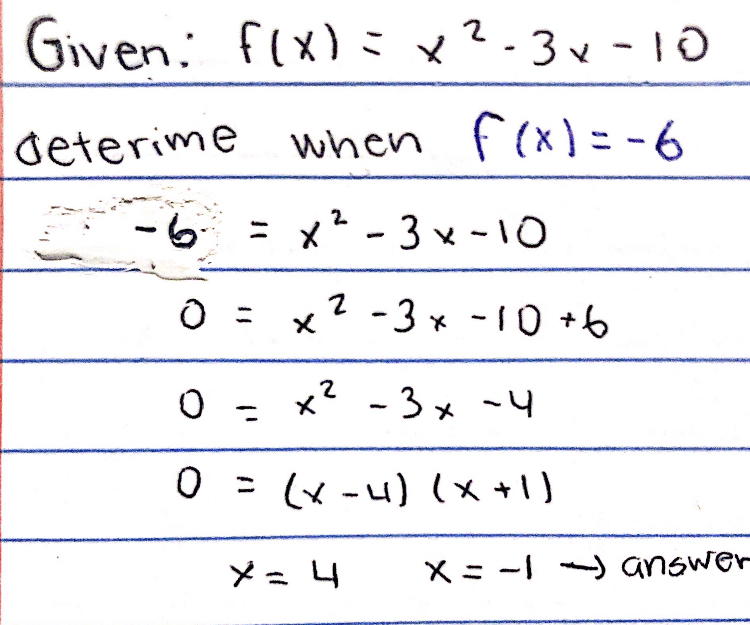 Given: f(x) = x² - 3x - 10
deterime when f(x) = -6
-6 = x² - 3x - 10
0 = x² - 3x - 10 + 6
0 = x² - 3x - 4
0 = (x - 4) (x + 1)
x = 4 x = -1 → answer